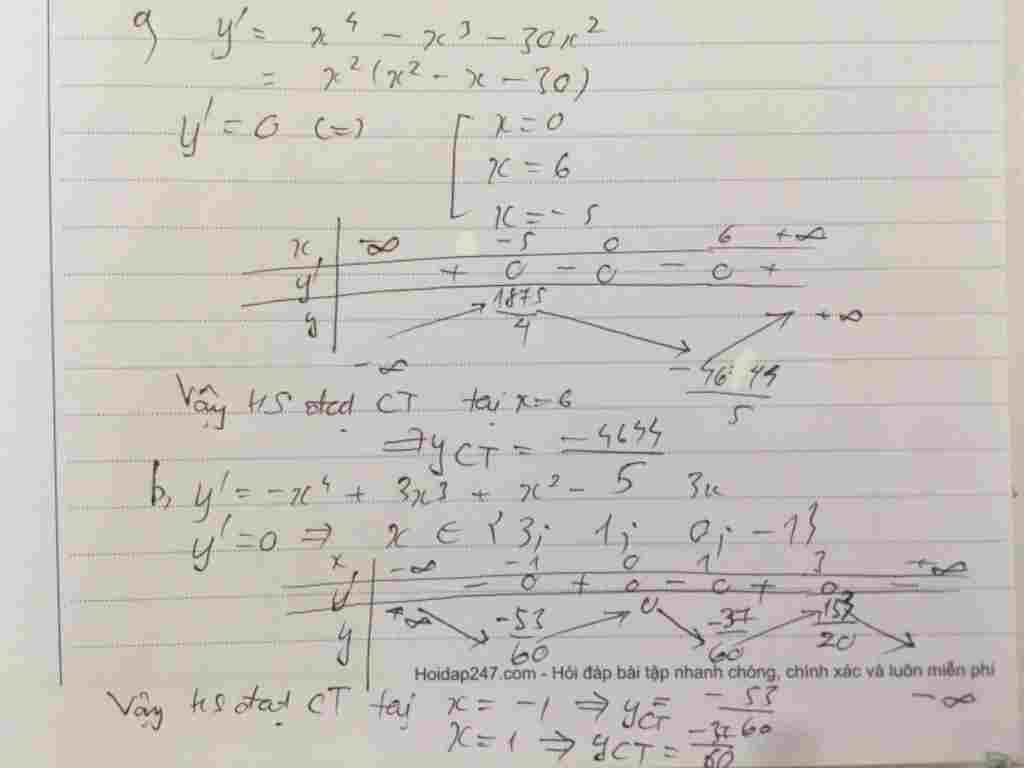 a) y' = x⁴ - x³ - 30x²
= x²(x² - x - 30)
y' = 0 (=) [ x = 0
x = 6
x = -5
x | -∞ -5 0 6 +∞
y' | + 0 - 0 - 0 +
y | -∞ 1875/4 -4644/5 +∞
Vậy HS đtạ CT tại x = 6
⇒ y CT = -4644/5
b, y' = -x⁴ + 3x³ + x² - 3x
y' = 0 ⇒ x ∈ {3; 1; 0; -1}
x | -∞ -1 0 1 3 +∞
y' | - 0 + 0 - 0 + 0 -
y | +∞ -53/60 0 -37/60 153/20 -∞
Hoidap247.com - Hỏi đáp bài tập nhanh chóng, chính xác và luôn miễn phí
Vậy HS đtạ CT tại x = -1 ⇒ y CT = -53/60
x = 1 ⇒ y CT = -37/60